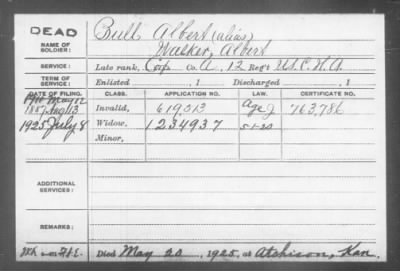 DEAD
NAME OF SOLDIER:
Bull Albert (alias)
Walker, Albert
SERVICE: Late rank, Corp Co. A, 12 Reg't U.S.C.H.A.
TERM OF SERVICE: Enlisted , 1 Discharged , 1
DATE OF FILING. CLASS. APPLICATION NO. LAW. CERTIFICATE NO.
1887 Aug 13 Invalid, 619,313 Age J 763,786
1925 July 8 Widow, 1234937 5-1-20
Minor,
ADDITIONAL SERVICES:
REMARKS:
Died May 20, 1925, at Atchison, Kan.